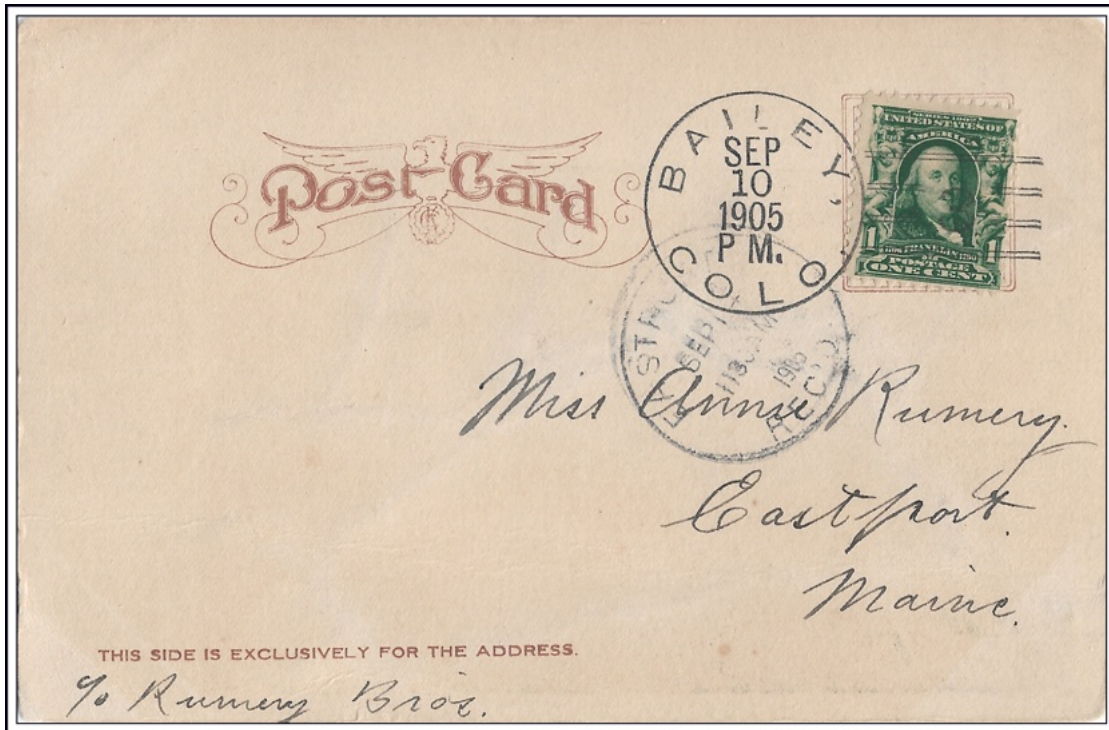 Post Card
BAILEY,
SEP
10
1905
P M.
COLO.
SERIES 1902
UNITED STATES OF
AMERICA
1 1
FRANKLIN
POSTAGE
ONE CENT
SEP
1130 AM
1905
REC'D.
Miss Annie Rumery.
Eastport.
Maine.
THIS SIDE IS EXCLUSIVELY FOR THE ADDRESS.
c/o Rumery Bros.